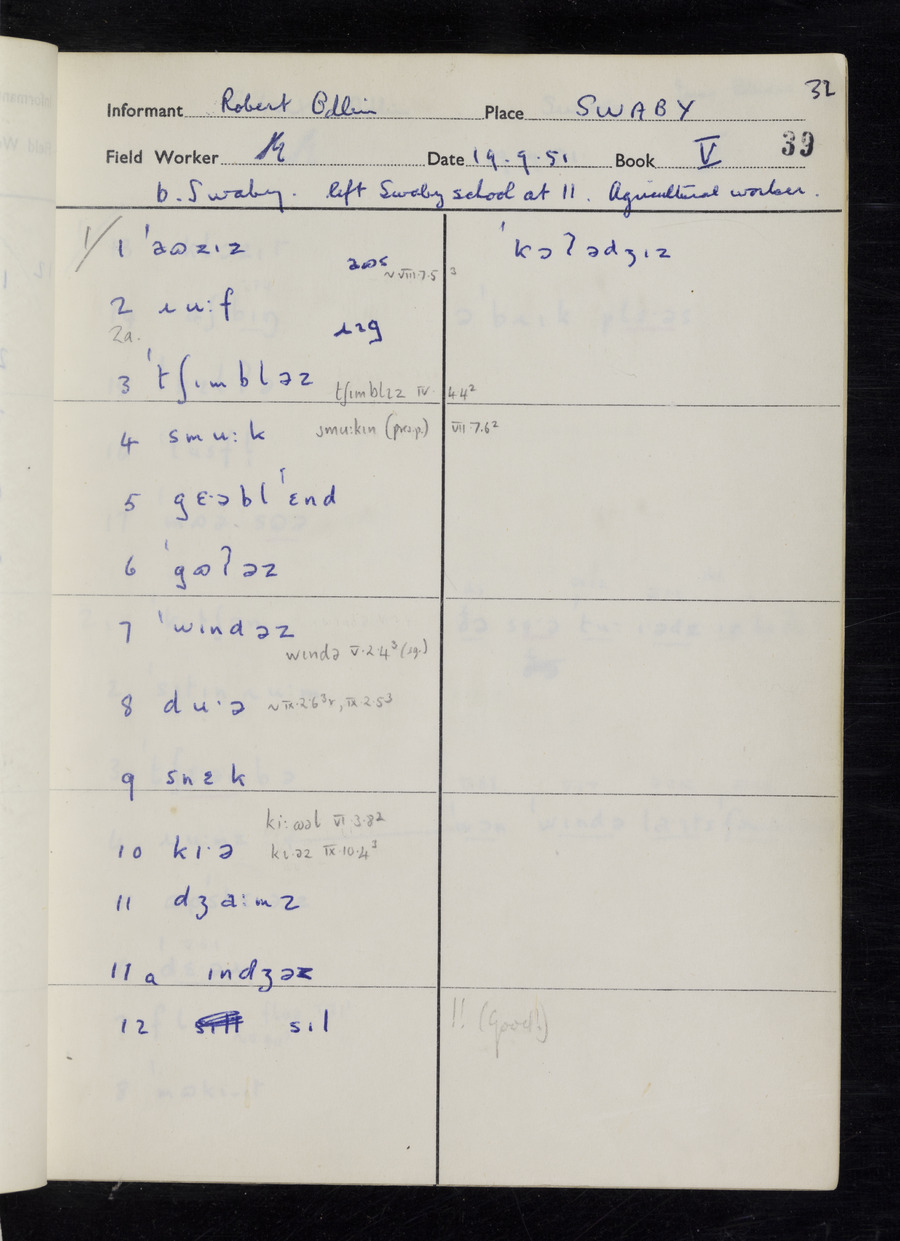 32
Informant Robert Odlin Place SWABY
Field Worker Date 19.9.51 Book V 39
b. Swaby. left Swaby school at 11. Agricultural worker.
1/ 1 ˈəʊzɪz ˈkɔʔədʒɪz
əʊs ~ VIII.7.5 3
2 ɹuːf
2a. ɹɪg
3 ˈtʃɪmbləz tʃɪmblɪz IV. 44²
4 smuːk smuːkɪn (pres.p.) VII.7.6²
5 gɛˑəblˈɛnd
6 ˈgʊʔəz
7 ˈwɪndəz
wɪndə V.2.4³ (sg.)
8 duˑə ~ IX.2.6³r, IX.2.5³
9 snɛk
kiːʊəl VI.3.8²
10 kɪˑə kɪəz IX.10.4³
11 dʒaːmz
11a ɪndʒəz
12 sɪl !! (Good!)